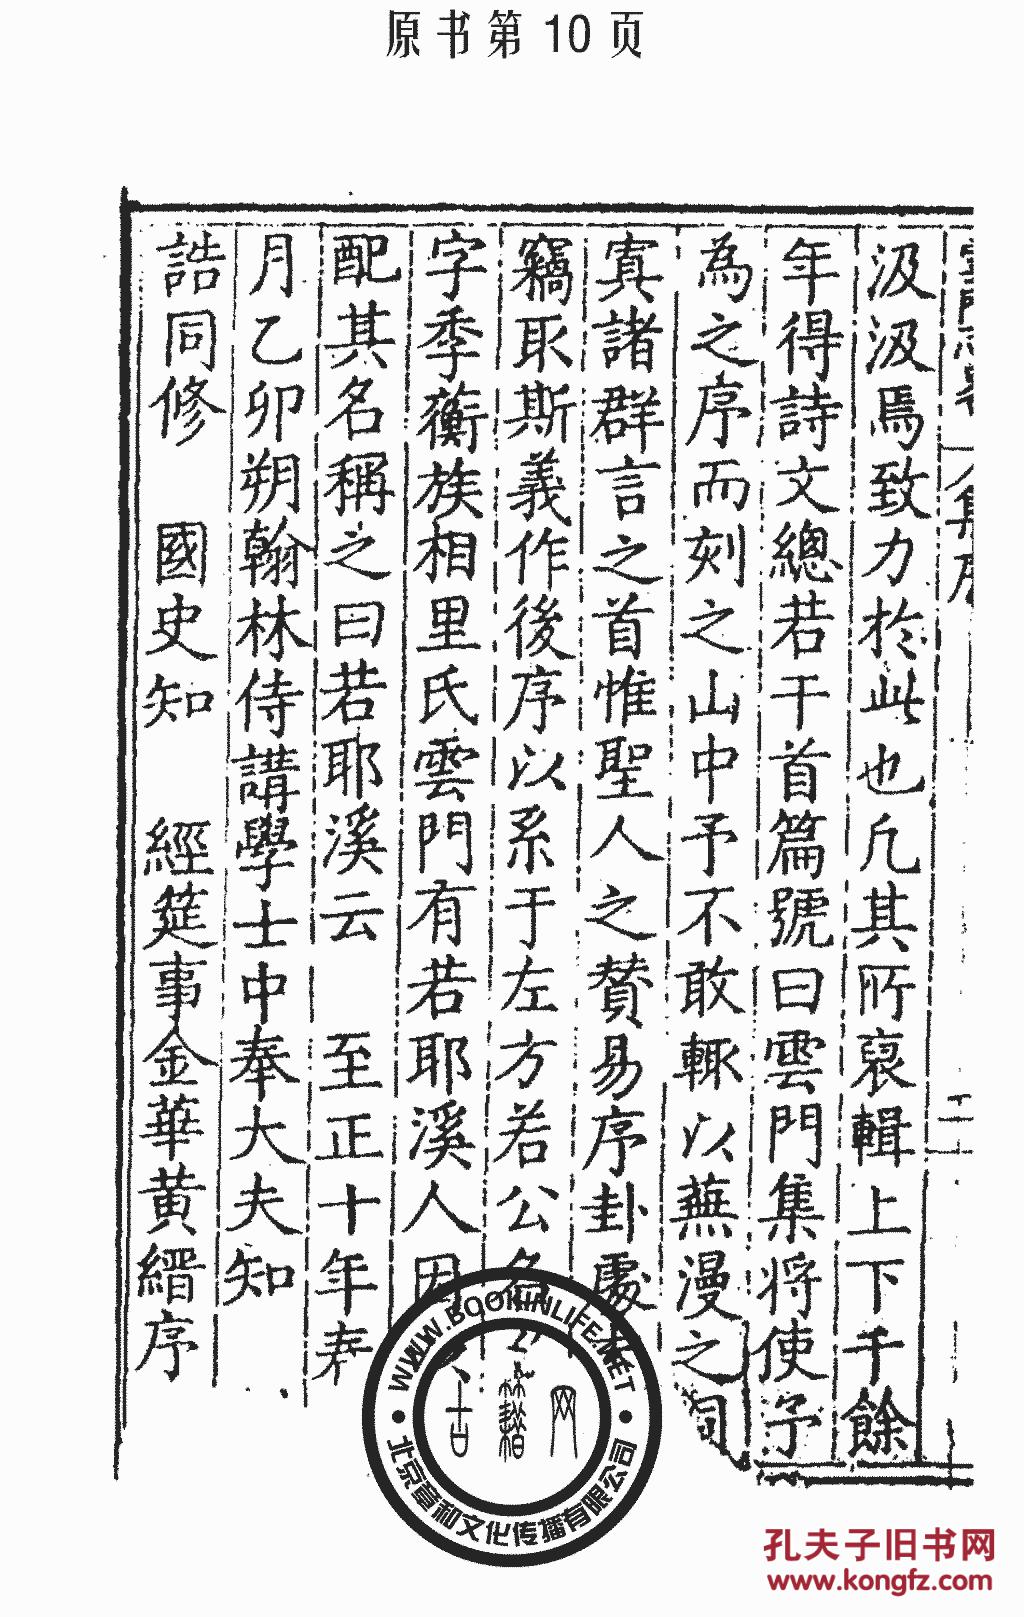 原书第10页
汲汲焉致力於此也凡其所裒輯上下千餘
年得詩文總若干首篇號曰雲門集將使予
為之序而刻之山中予不敢輒以蕪漫之詞
寘諸群言之首惟聖人之贊易序卦處
竊取斯義作後序以系于左方若公名
字季蘅族相里氏雲門有若耶溪人因
配其名稱之曰若耶溪云 至正十年春
月乙卯朔翰林侍講學士中奉大夫知
誥同修 國史知 經筵事金華黄縉序
WWW.BOOKINLIFE.NET
古籍网
北京章和文化传播有限公司
孔夫子旧书网
www.kongfz.com